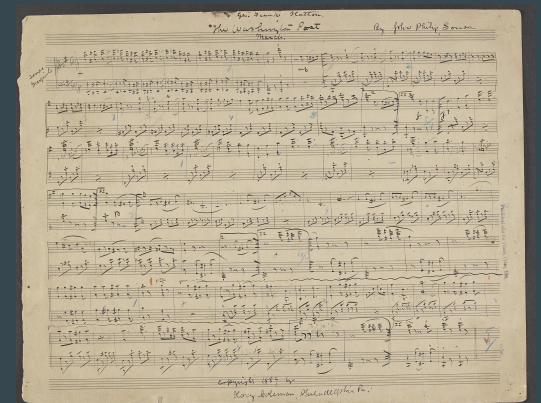 Gen. Frank Hatton
"The Washington Post
March.
By John Philip Sousa
Copyright 1889 by
Harry Coleman, Philadelphia Pa.